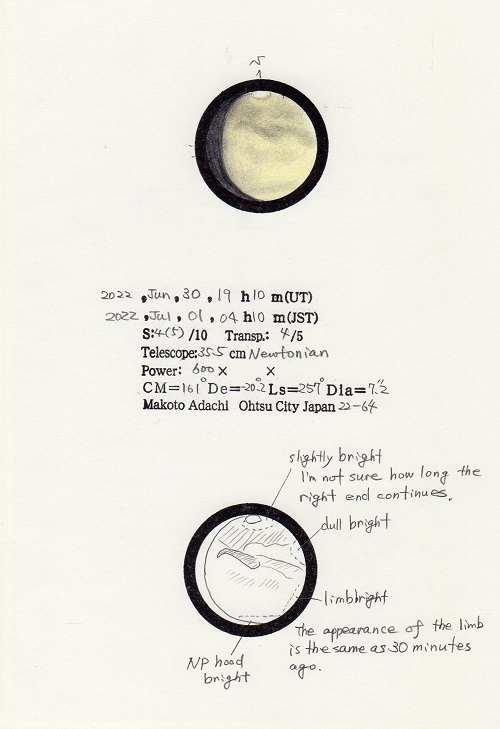 S
2022 , Jun , 30 , 19 h 10 m (UT)
2022 , Jul , 01 , 04 h 10 m (JST)
S: 4(5) /10 Transp.: 4/5
Telescope: 35.5 cm Newtonian
Power: 600 × ×
CM=161° De=-20.2 Ls=257° Dia=7.″2
Makoto Adachi Ohtsu City Japan 22-64
slightly bright
I'm not sure how long the
right end continues.
dull bright
limb bright
The appearance of the limb
is the same as 30 minutes
ago.
NP hood
bright